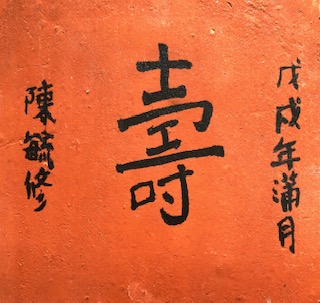 戊戌年蒲月
壽
陳毓修